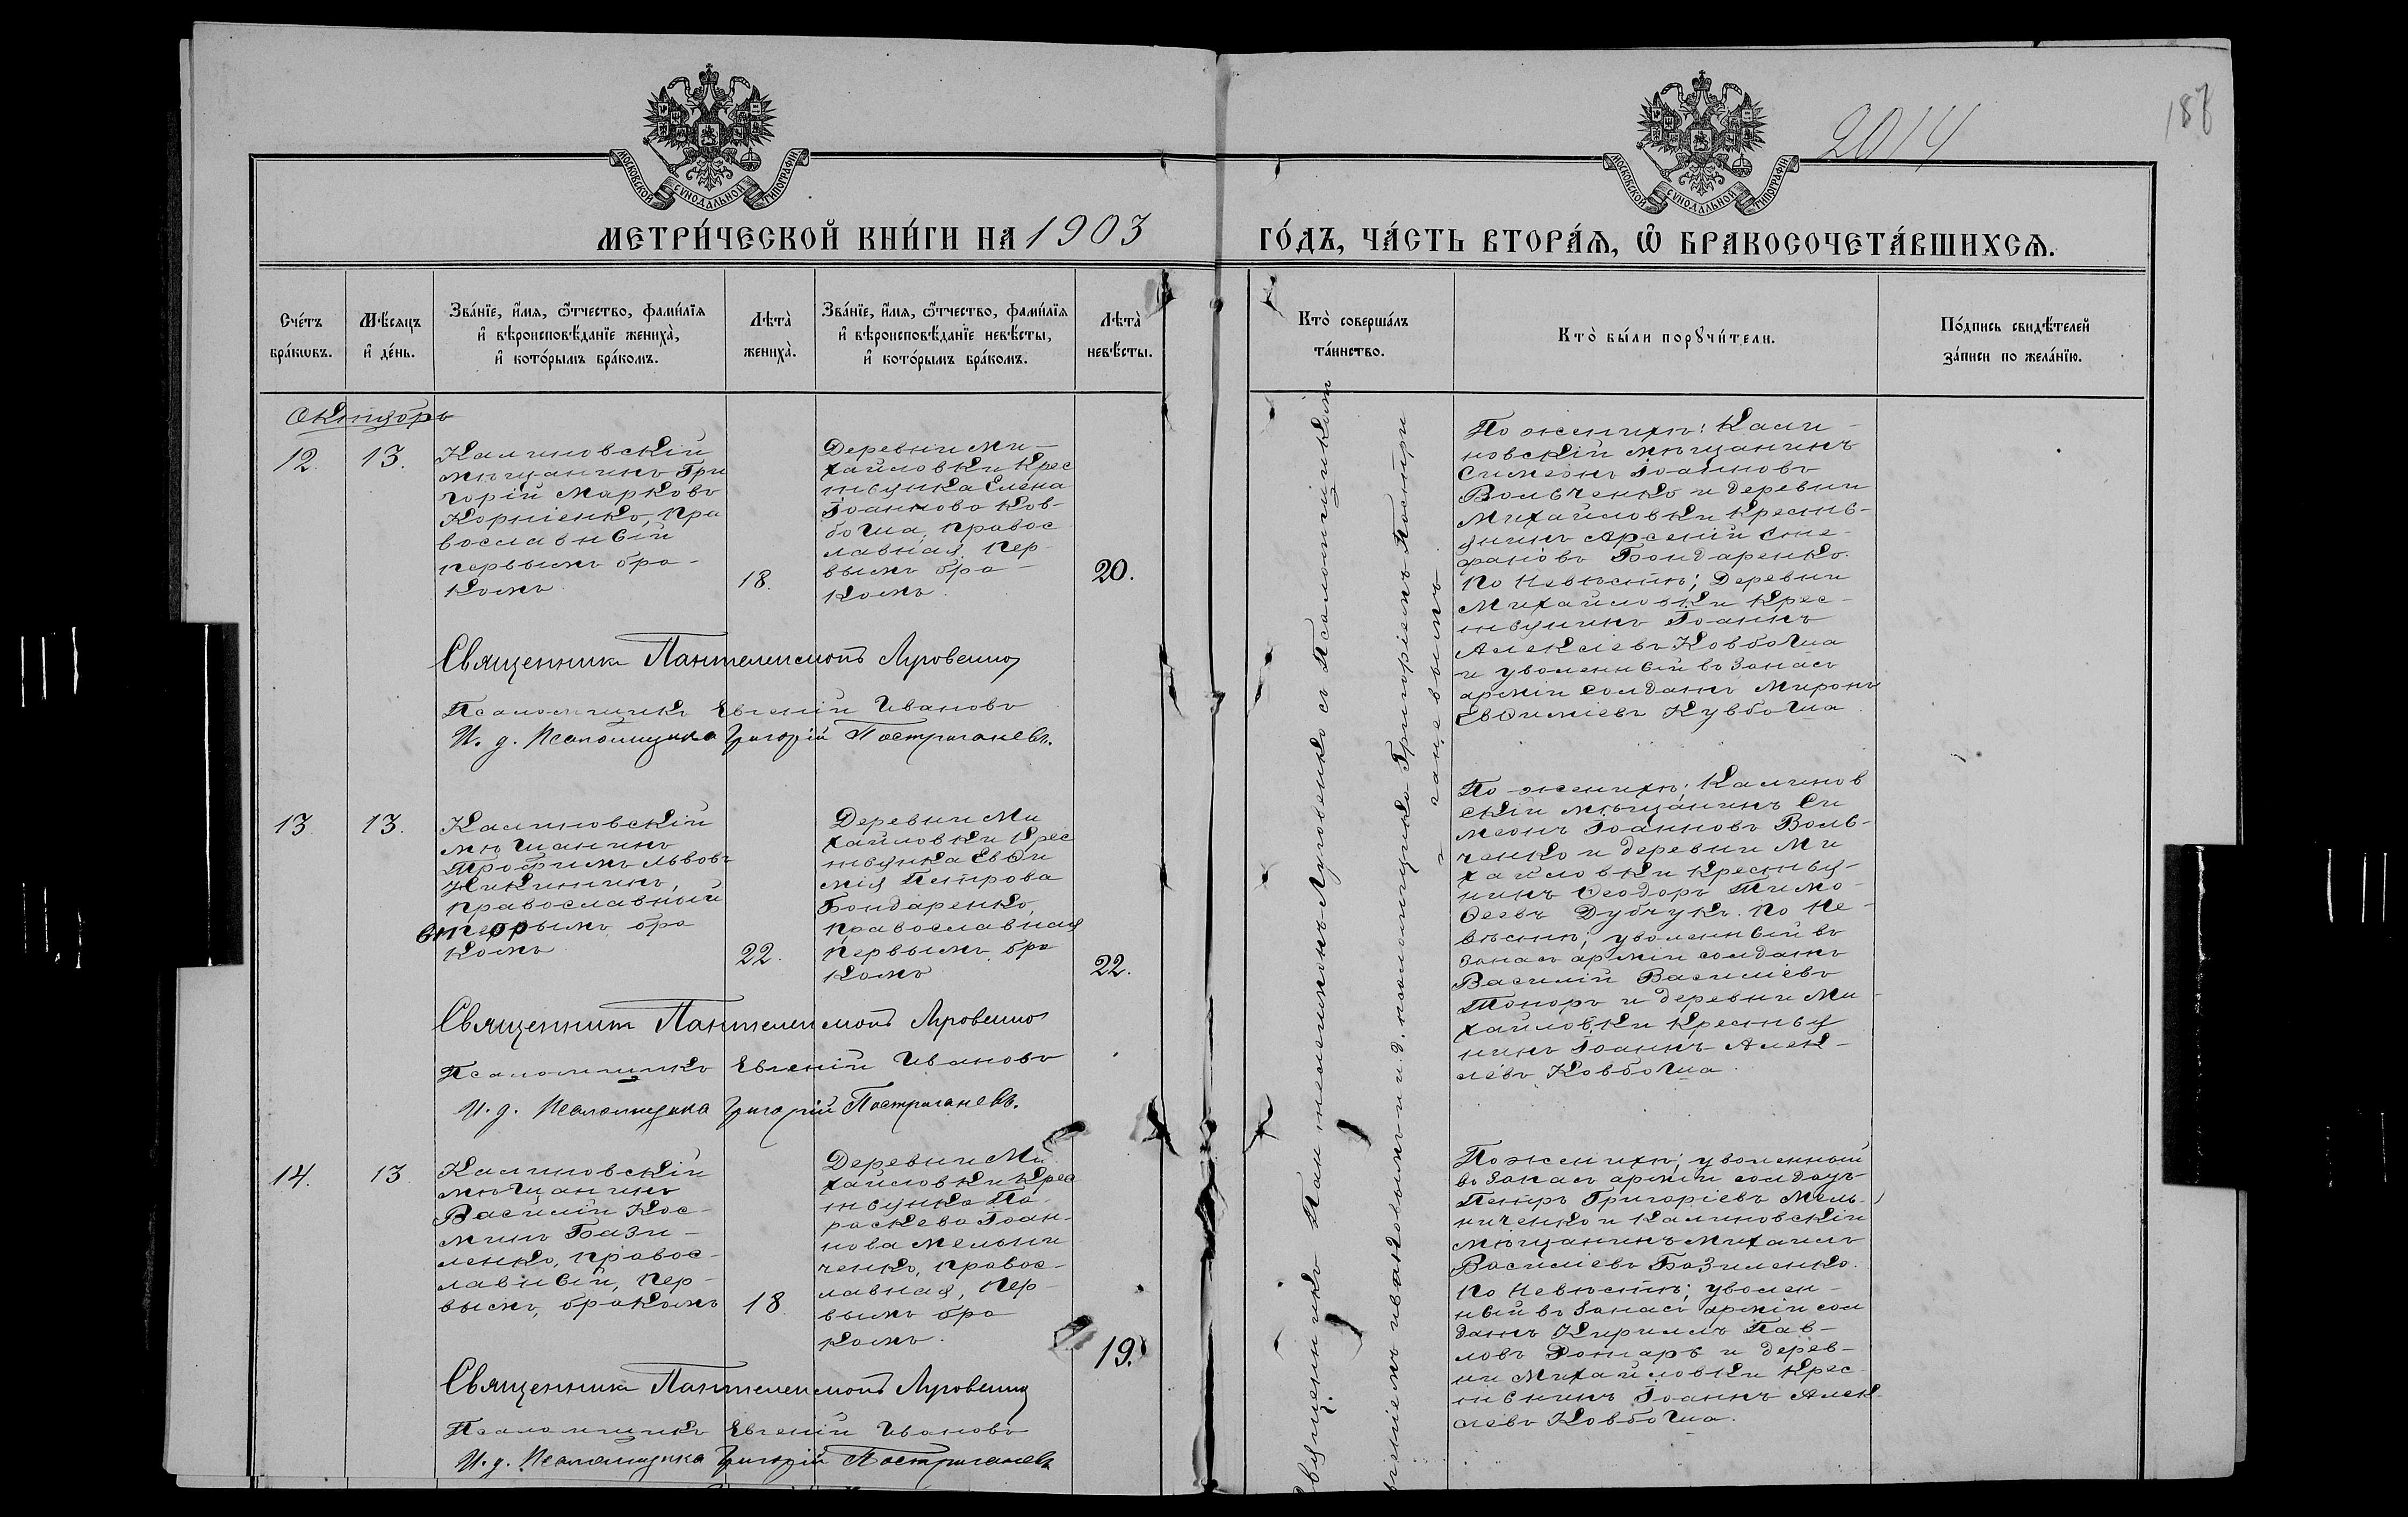 2014
187
МОСКОВСКОЙ СУНОДАЛЬНОЙ ТИПОГРАФІИ
МОСКОВСКОЙ СУНОДАЛЬНОЙ ТИПОГРАФІИ
МЕТРИ́ЧЕСКОЙ КНИ́ГИ НА 1903
ГО́ДЪ, ЧА́СТЬ ВТОРА́Ѧ, Ѽ БРАКОСОЧЕТА́ВШИХСѦ.
Сче́тъ
бра́кѡвъ.
Мѣ́сяцъ
и҆ де́нь.
Зва́нїе, и҆́мя, ѻ҆́тчество, фами́лїя
и҆ вѣроисповѣ́данїе жениха̀,
и҆ кото́рымъ бра́комъ.
Лѣта̀
жениха̀.
Зва́нїе, и҆́мя, ѻ҆́тчество, фами́лїя
и҆ вѣроисповѣ́данїе невѣ́сты,
и҆ кото́рымъ бра́комъ.
Лѣта̀
невѣ́сты.
Кто̀ соверша́лъ
та́инство.
Кто̀ бы́ли порꙋчи́тели.
По́дпись свидѣ́телей
за́писи по жела́нїю.
Октябрь
12.
13.
Калиновскій
мѣщанинъ Гри
горій Марковъ
Корніенко, пра
вославный
первымъ бра-
комъ
18.
Деревни Ми-
хайловки крес
тьянка Елена
Іоаннова Ков-
баша, правос
лавная, пер-
вымъ бра-
комъ.
20.
По женихѣ: Кали-
новскій мѣщанинъ
Симеонъ Іоанновъ
Вольченко и деревни
Михайловки кресть-
янинъ Арсеній Сте-
фановъ Бондаренко.
По невѣстѣ; деревни
Михайловки крес-
тьянинъ Іоаннъ
Алексіевъ Ковбаша
и уволенный въ запасъ
арміи солдатъ Миронъ
Евѳиміевъ Кувбаша.
Священникъ Пантелеимонъ
Псаломщикъ Евгеній Ивановъ
И. д. псаломщика Григорій Постригачевъ.
13
13.
Калиновскій
мѣщанинъ
Трофимъ Львовъ
православный
вторымъ бра
комъ
22.
Деревни Ми
хайловки крес
тьянка Евѳи
мія Петрова
Бондаренко,
православная
первымъ бра
комъ
22.
По женихѣ; Калинов
скій мѣщанинъ Си
меонъ Іоанновъ Воль-
ченко и деревни Ми
хайловки крестья-
нинъ Ѳеодоръ Тимо-
ѳеевъ Дубчукъ. По не-
вѣстѣ; уволенный въ
запасъ арміи солдатъ
Василій Василіевъ
Токоръ и деревни Ми-
хайловки крестья
нинъ Іоаннъ Алек-
сіевъ Ковбаша.
Священникъ Пантелеимонъ
Псаломщикъ Евгеній Ивановъ
И. д. псаломщика Григорій Постригачевъ.
14.
13
Калиновскій
мѣщанинъ
Василій Кос-
минъ Бази-
ленко, правос-
лавный, пер-
вымъ, бракомъ
18
Деревни Ми
хайловки крес
тьянка Па-
раскева Іоан-
нова Мельни
ченко, правос-
лавная, пер-
вымъ бра
комъ.
19.
По женихѣ; уволенный
въ запасъ арміи солдатъ
Петръ Григоріевъ Мель-
ниченко и Калиновскій
мѣщанинъ Михаилъ
Василіевъ Базиленко.
По невѣстѣ; уволен-
ный въ запасъ арміи сол
датъ Кириллъ Пав-
ловъ и дерев-
ни Михайловки крес
тьянинъ Іоаннъ Алек
сіевъ Ковбаша.
Священникъ Пантелеимонъ
Псаломщикъ Евгеній Ивановъ
И. д. псаломщика Григорій Постригачевъ
Священникъ Пантелеимонъ съ псаломщикомъ
Евгеніемъ Ивановымъ и и. д. псаломщика Григоріемъ Постри
гачевымъ